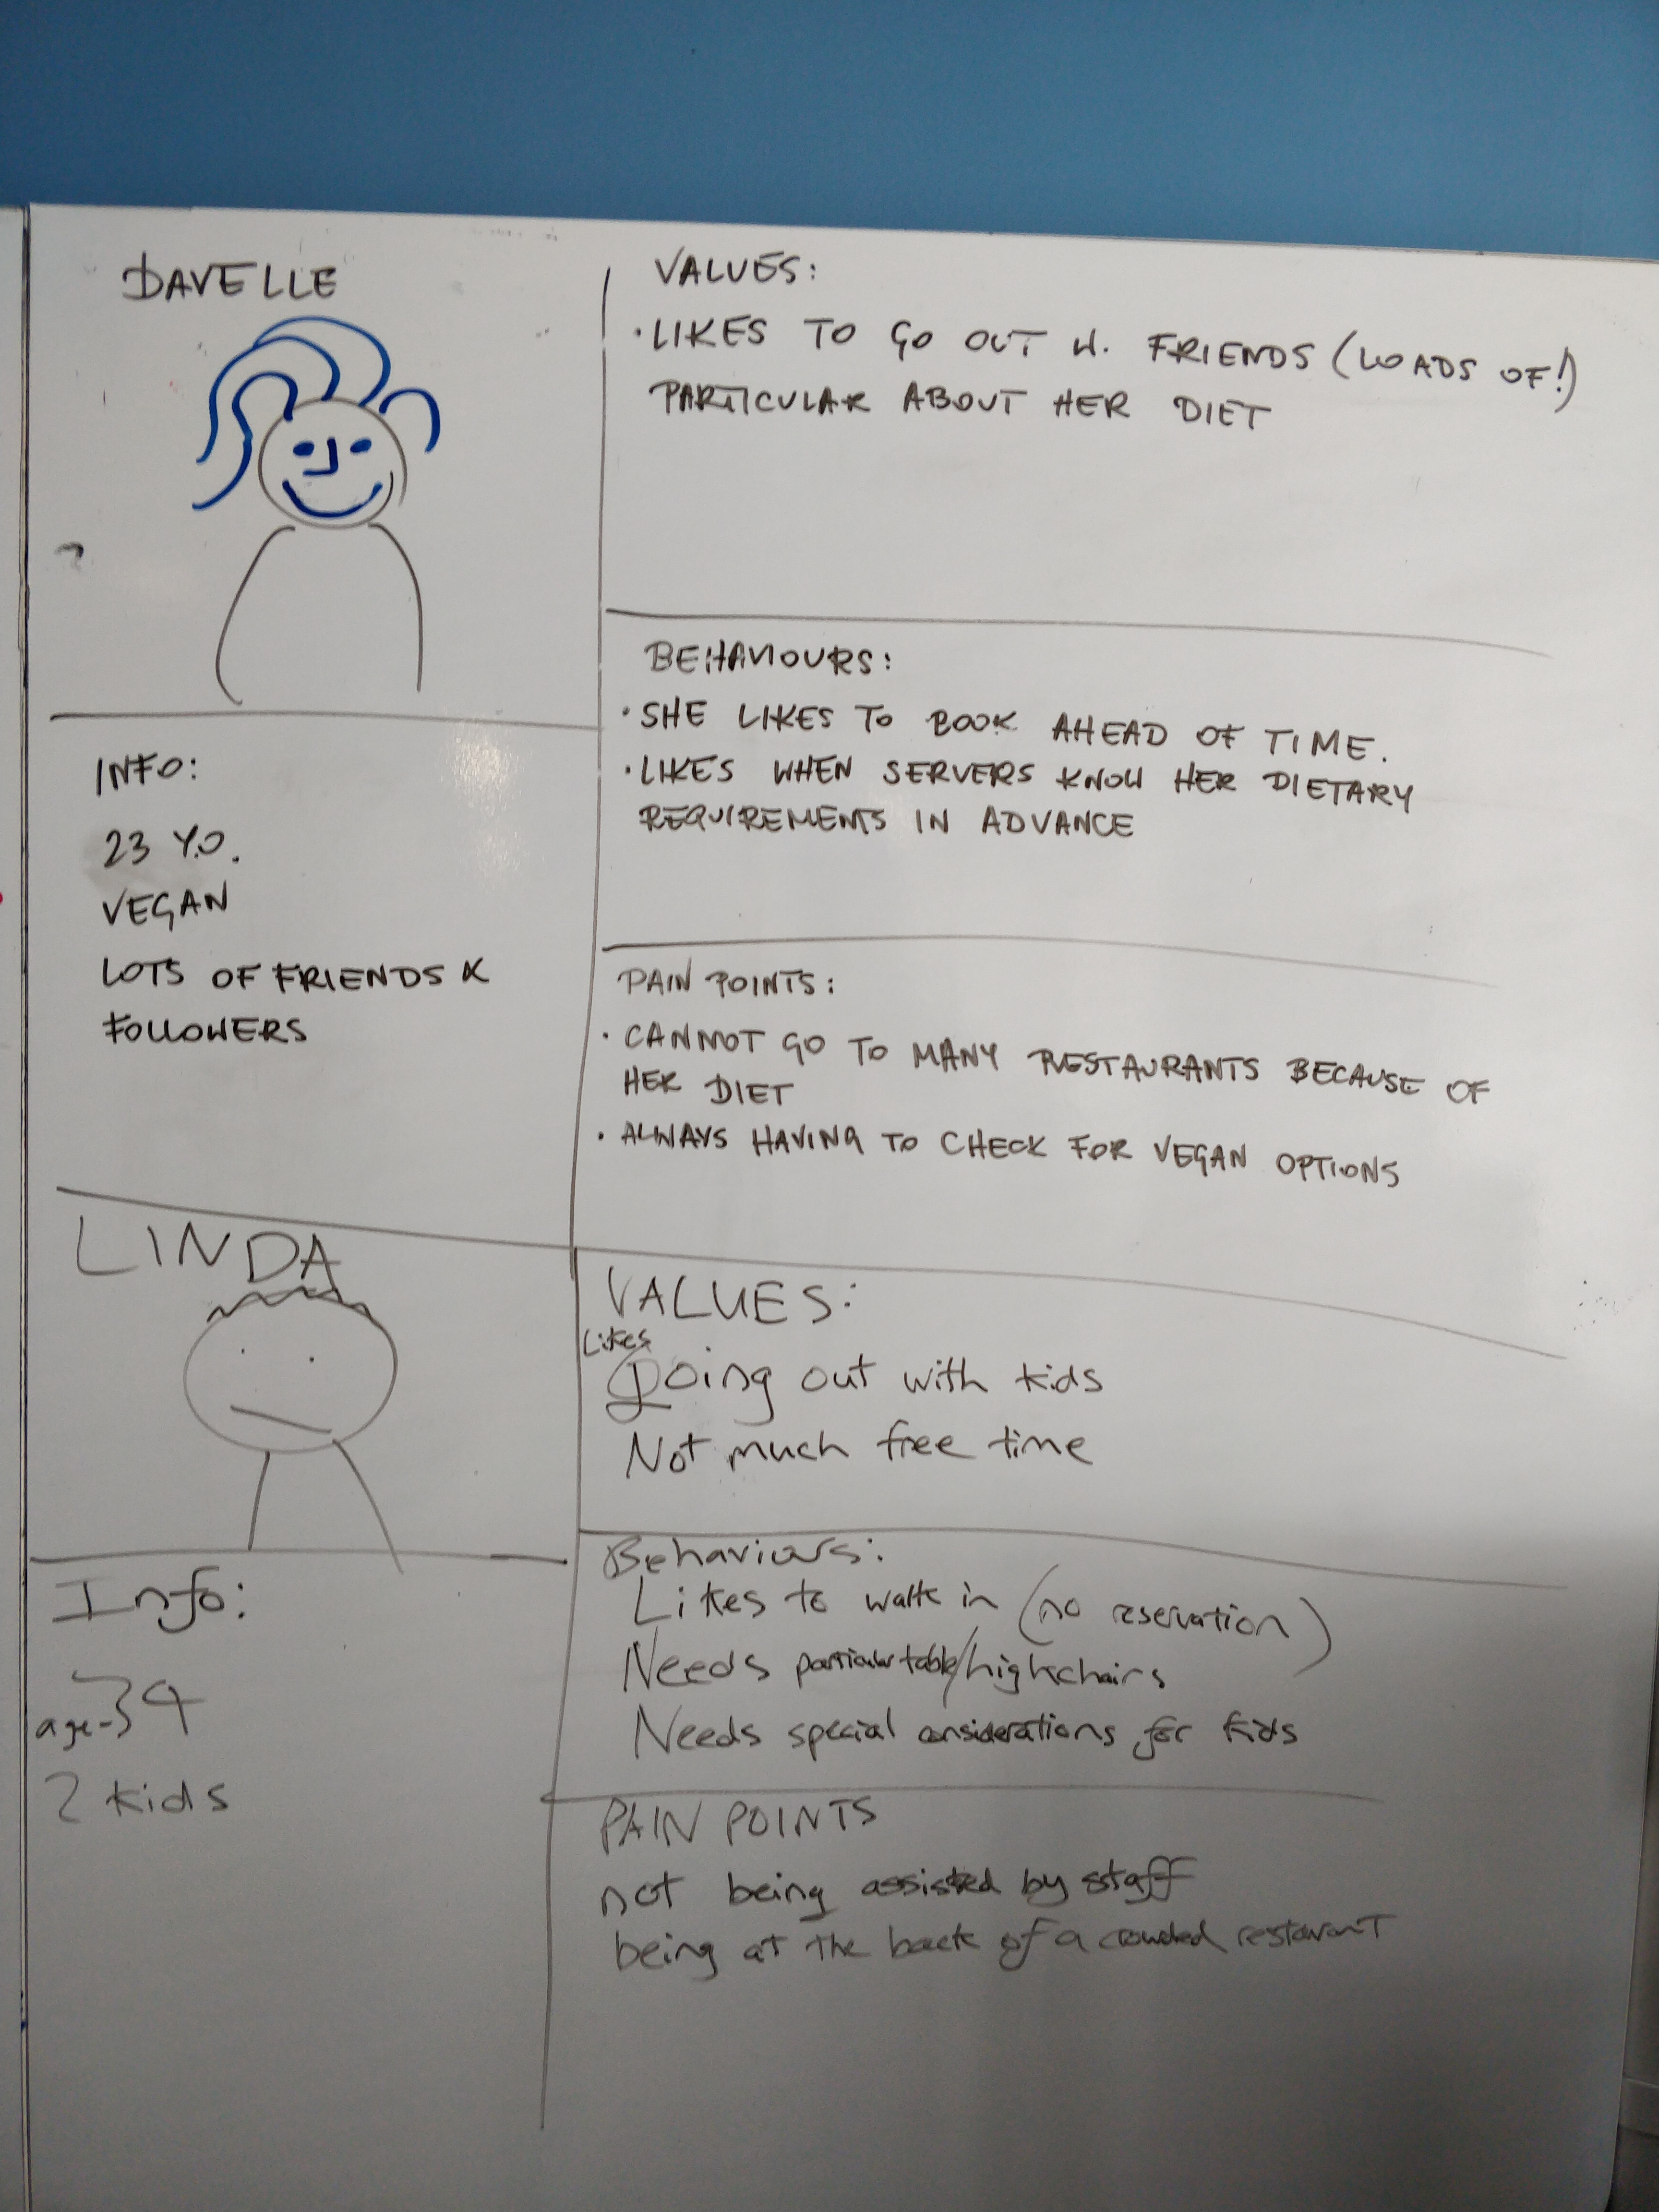 DAVELLE
VALUES:
• LIKES TO GO OUT W. FRIENDS (LOADS OF!)
PARTICULAR ABOUT HER DIET
BEHAVIOURS:
• SHE LIKES TO BOOK AHEAD OF TIME.
• LIKES WHEN SERVERS KNOW HER DIETARY
REQUIREMENTS IN ADVANCE
INFO:
23 Y.O.
VEGAN
LOTS OF FRIENDS &
FOLLOWERS
PAIN POINTS:
• CANNOT GO TO MANY RESTAURANTS BECAUSE OF
HER DIET
• ALWAYS HAVING TO CHECK FOR VEGAN OPTIONS
LINDA
VALUES:
Likes
Going out with kids
Not much free time
Behaviors:
Likes to walk in (no reservation)
Needs particular table/highchairs
Needs special considerations for kids
Info:
age-34
2 kids
PAIN POINTS
not being assisted by staff
being at the back of a crowded restaurant